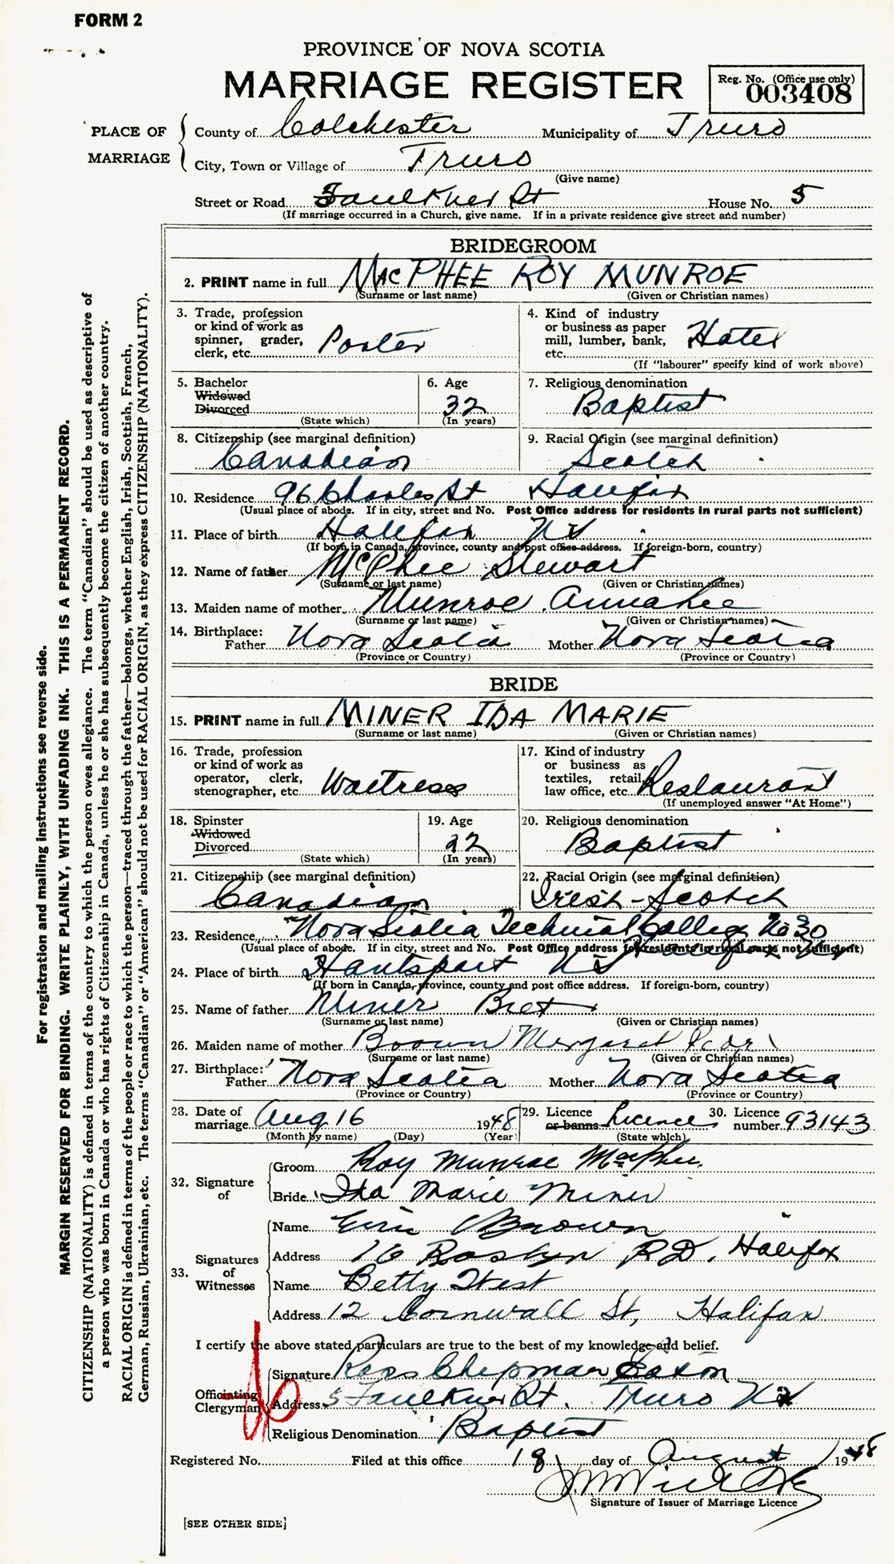 FORM 2
PROVINCE OF NOVA SCOTIA
MARRIAGE REGISTER
Reg. No. (Office use only)
003408
PLACE OF MARRIAGE
County of Colchester Municipality of Truro
City, Town or Village of Truro
(Give name)
Street or Road Faulkner St House No. 5
(If marriage occurred in a Church, give name. If in a private residence give street and number)
BRIDEGROOM
2. PRINT name in full MACPHEE ROY MUNROE
(Surname or last name) (Given or Christian names)
3. Trade, profession or kind of work as spinner, grader, clerk, etc. Porter
4. Kind of industry or business as paper mill, lumber, bank, etc. Hotel
(If "labourer" specify kind of work above)
5. Bachelor Widowed Divorced
(State which)
6. Age 32
(In years)
7. Religious denomination Baptist
8. Citizenship (see marginal definition) Canadian
9. Racial Origin (see marginal definition) Scotch
10. Residence 96 Charles St Halifax
(Usual place of abode. If in city, street and No. Post Office address for residents in rural parts not sufficient)
11. Place of birth Halifax NS
(If born in Canada, province, county and post office address. If foreign-born, country)
12. Name of father McPhee Stewart
(Surname or last name) (Given or Christian names)
13. Maiden name of mother Munroe
(Surname or last name) (Given or Christian names)
14. Birthplace: Father Nova Scotia Mother Nova Scotia
(Province or Country) (Province or Country)
BRIDE
15. PRINT name in full MINER IDA MARIE
(Surname or last name) (Given or Christian names)
16. Trade, profession or kind of work as operator, clerk, stenographer, etc Waitress
17. Kind of industry or business as textiles, retail, law office, etc. Restaurant
(If unemployed answer "At Home")
18. Spinster Widowed Divorced
(State which)
19. Age 22
(In years)
20. Religious denomination Baptist
21. Citizenship (see marginal definition) Canadian
22. Racial Origin (see marginal definition) Irish-Scotch
23. Residence Nova Scotia Technical College No 30
(Usual place of abode. If in city, street and No. Post Office address for residents in rural parts not sufficient)
24. Place of birth Hantsport NS
(If born in Canada, province, county and post office address. If foreign-born, country)
25. Name of father Miner
(Surname or last name) (Given or Christian names)
26. Maiden name of mother Brown Margaret
(Surname or last name) (Given or Christian names)
27. Birthplace: Father Nova Scotia Mother Nova Scotia
(Province or Country) (Province or Country)
28. Date of marriage Aug 16 1948
(Month by name) (Day) (Year)
29. Licence or banns Licence
(State which)
30. Licence number 93143
32. Signature of
Groom Roy Munroe MacPhee
Bride Ida Marie Miner
33. Signatures of Witnesses
Name Brown
Address 16 RD, Halifax
Name Betty West
Address 12 Cornwall St, Halifax
I certify the above stated particulars are true to the best of my knowledge and belief.
Officiating Clergyman
Signature Ross Chipman Eaton
Address 5 Faulkner St. Truro NS
Religious Denomination Baptist
Registered No. Filed at this office 18 day of August 1948
Signature of Issuer of Marriage Licence
[SEE OTHER SIDE]
For registration and mailing instructions see reverse side.
MARGIN RESERVED FOR BINDING. WRITE PLAINLY, WITH UNFADING INK. THIS IS A PERMANENT RECORD.
CITIZENSHIP (NATIONALITY) is defined in terms of the country to which the person owes allegiance. The term "Canadian" should be used as descriptive of
a person who was born in Canada or who has rights of Citizenship in Canada, unless he or she has subsequently become the citizen of another country.
RACIAL ORIGIN is defined in terms of the people or race to which the person—traced through the father—belongs, whether English, Irish, Scottish, French,
German, Russian, Ukrainian, etc. The terms "Canadian" or "American" should not be used for RACIAL ORIGIN, as they express CITIZENSHIP (NATIONALITY).